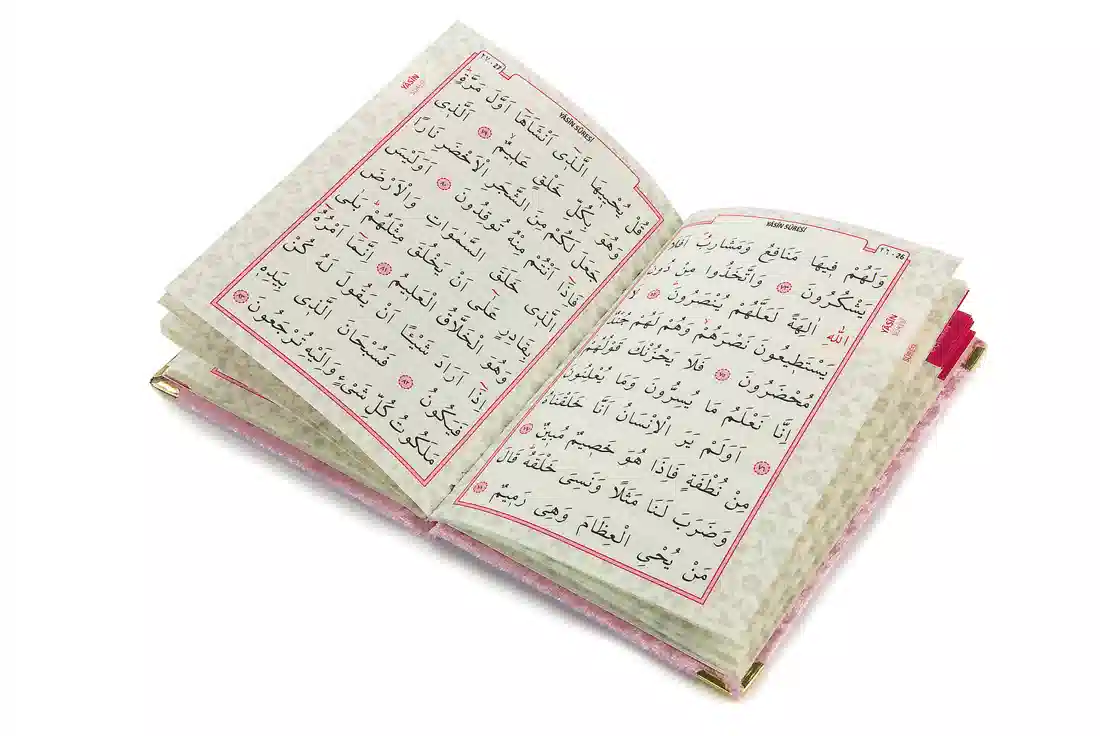 YÂSİN SÛRESİ
٢٦ - 26
وَلَهُمْ فِيهَا مَنَافِعُ وَمَشَارِبُ اَفَلَا
يَشْكُرُونَ ٧٣ وَاتَّخَذُوا مِنْ دُونِ
اللّٰهِ اٰلِهَةً لَعَلَّهُمْ يُنْصَرُونَ ٧٤ لَا
يَسْتَطِيعُونَ نَصْرَهُمْ وَهُمْ لَهُمْ جُنْدٌ
مُحْضَرُونَ ٧٥ فَلَا يَحْزُنْكَ قَوْلُهُمْ
اِنَّا نَعْلَمُ مَا يُسِرُّونَ وَمَا يُعْلِنُونَ
٧٦ اَوَلَمْ يَرَ الْاِنْسَانُ اَنَّا خَلَقْنَاهُ
مِنْ نُطْفَةٍ فَاِذَا هُوَ خَصِيمٌ مُبِينٌ ٧٧
وَضَرَبَ لَنَا مَثَلًا وَنَسِيَ خَلْقَهُ قَالَ
مَنْ يُحْيِ الْعِظَامَ وَهِيَ رَمِيمٌ ٧٨
YÂSİN
SÛRESİ
٢٧ - 27
YÂSİN SÛRESİ
قُلْ يُحْيِيهَا الَّذِى اَنْشَاَهَا اَوَّلَ مَرَّةٍ
وَهُوَ بِكُلِّ خَلْقٍ عَلِيمٌ ٧٩ اَلَّذِى
جَعَلَ لَكُمْ مِنَ الشَّجَرِ الْاَخْضَرِ نَارًا
فَاِذَا اَنْتُمْ مِنْهُ تُوقِدُونَ ٨٠ اَوَلَيْسَ
الَّذِى خَلَقَ السَّمٰوَاتِ وَالْاَرْضَ
بِقَادِرٍ عَلٰى اَنْ يَخْلُقَ مِثْلَهُمْ بَلٰى
وَهُوَ الْخَلَّاقُ الْعَلِيمُ ٨١ اِنَّمَا اَمْرُهُ
اِذَا اَرَادَ شَيْئًا اَنْ يَقُولَ لَهُ كُنْ
فَيَكُونُ ٨٢ فَسُبْحَانَ الَّذِى بِيَدِهِ
مَلَكُوتُ كُلِّ شَىْءٍ وَاِلَيْهِ تُرْجَعُونَ ٨٣
YÂSİN
SÛRESİ